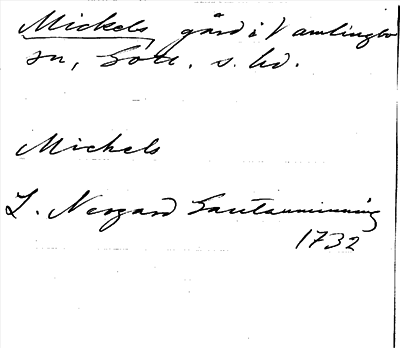 Mickels, gård i Vamlingbo
sn, Gotl. s. hd.
Mickels
L. Nergard Gautauminning
1732